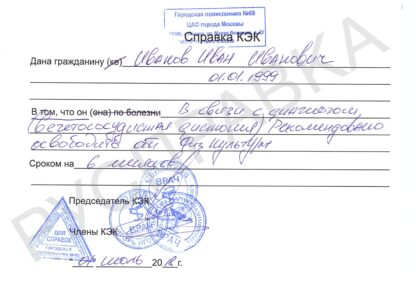 Городская поликлиника №68
ЦАО города Москвы
Справка КЭК
Дана гражданину (ке) Иванов Иван Иванович
01.01.1999
В том, что он (она) по болезни В связи с диагнозом
(Вегетососудистая дистония) Рекомендовано
освободить от физкультуры
Сроком на 6 месяцев
Председатель КЭК
ВРАЧ
Члены КЭК
ВРАЧ
ДЛЯ
СПРАВОК
ГОРОДСКАЯ
июль 20 г.
РУССПРАВКА